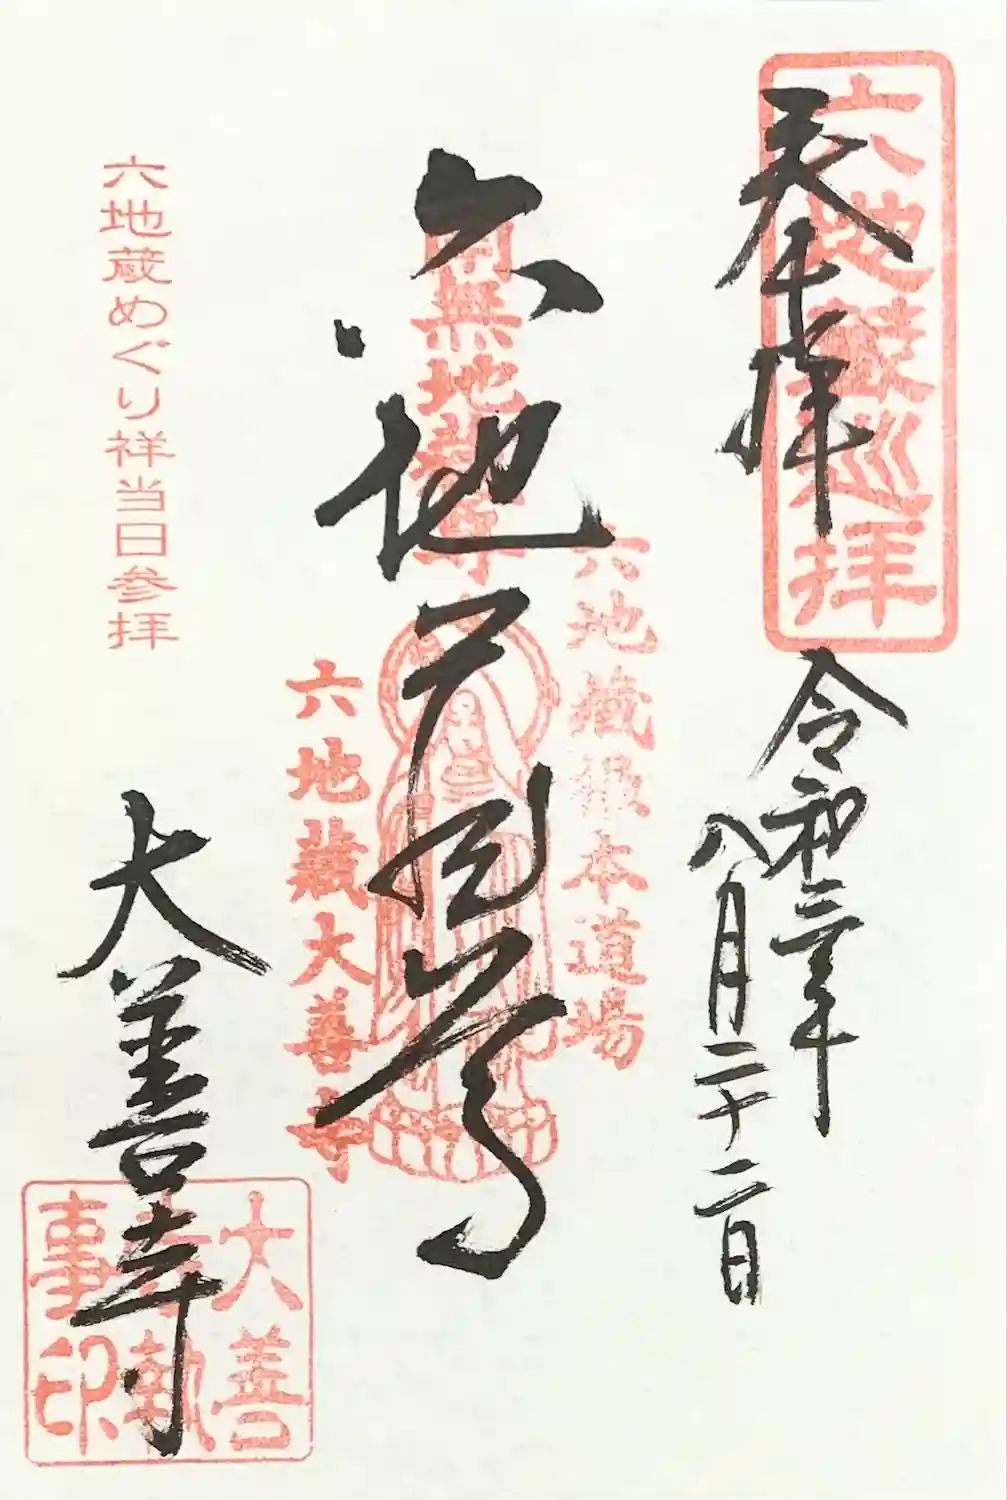 六地蔵巡拝
奉拝
令和三年
八月二十二日
六地蔵根本道場
南無地蔵尊
六地蔵尊
六地蔵大善寺
六地蔵めぐり祥当日参拝
大善寺
大善寺執事印